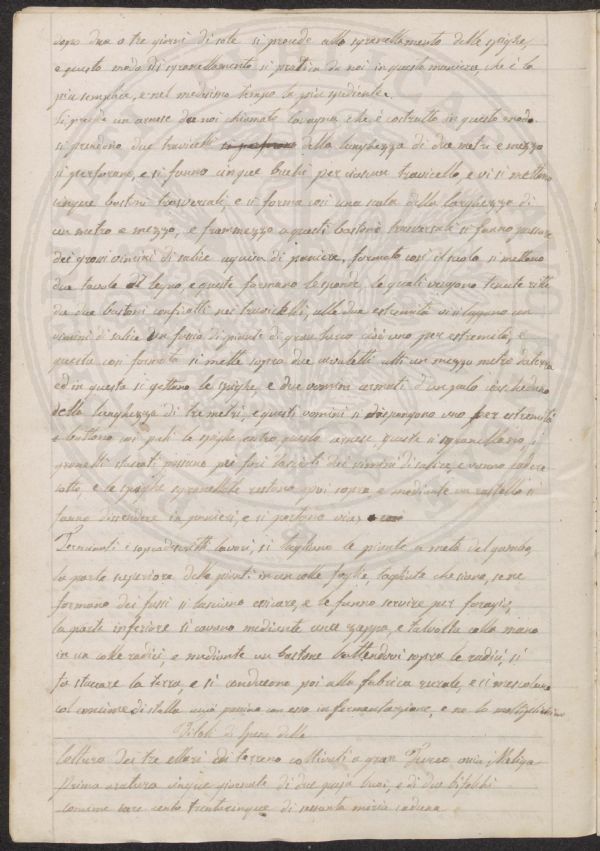 dopo due o tre giorni di sole si procede allo sgranellamento delle spighe,
e questo modo di sgranellamento si pratica da noi in questa maniera, che è la
più semplice, e nel medesimo tempo la più spediente.
Si prende un arnese da noi chiamato che è costrutto in questo modo.
si prendono due travicelli della lunghezza di due metri e mezzo
si perforano, e si fanno cinque buchi per ciascun travicello, e vi si mettono
cinque bastoni trasversali, e si forma così una scala della larghezza di
un metro e mezzo, e frammezzo a questi bastoni trasversali si fanno passare
dei grossi vimini di salice a guisa di paniere, formato così il suolo si mettono
due tavole di legno, e queste formano le sponde, le quali vengono tenute ritte
da due bastoni confitti nei travicelli, alle due estremità vi si legano con
vimini di salice un fascio di piante di gran turco così uno per estremità, e
questa così formata si mette sopra due cavaletti alti un mezzo metro da terra
ed in questa si gettano le spighe e due uomini armati d'un palo cias cheduno
della lunghezza di tre metri, e questi uomini si dispongono uno per estremità
e battono coi pali le spighe entro questo arnese queste si sgranellano, i
granelli staccati passano pei fori lasciati dai vimini di salice, e vanno cadere
sotto, e le spighe sgranellate restano quivi sopra e mediante un rastello si
fanno discendere in panieri, e si portano via,
Terminati i sopradescritti lavori, si tagliano le piante a metà del gambo,
la parte superiore delle piante in un colle foglie, tagliate che siano, se ne
formano dei fasci si lasciano essicare, e le fanno servire per foraggio,
la parte inferiore si cavano mediante una zappa, e talvolta colla mano
in un colle radici, e mediante un bastone battendovi sopra le radici, si
fa staccare la terra, e si conducono poi alla fabrica rurale, e si mescolano
col concime di stalla con esso in fermentazione, e ne lo
Titoli di spese della
coltura dei tre ettari di terreno coltivati a gran Turco ossia Meliga
Prima aratura cinque giornate di due paja buoi, e di due bifolchi
Concime care cento trentacinque di sessanta miria caduna